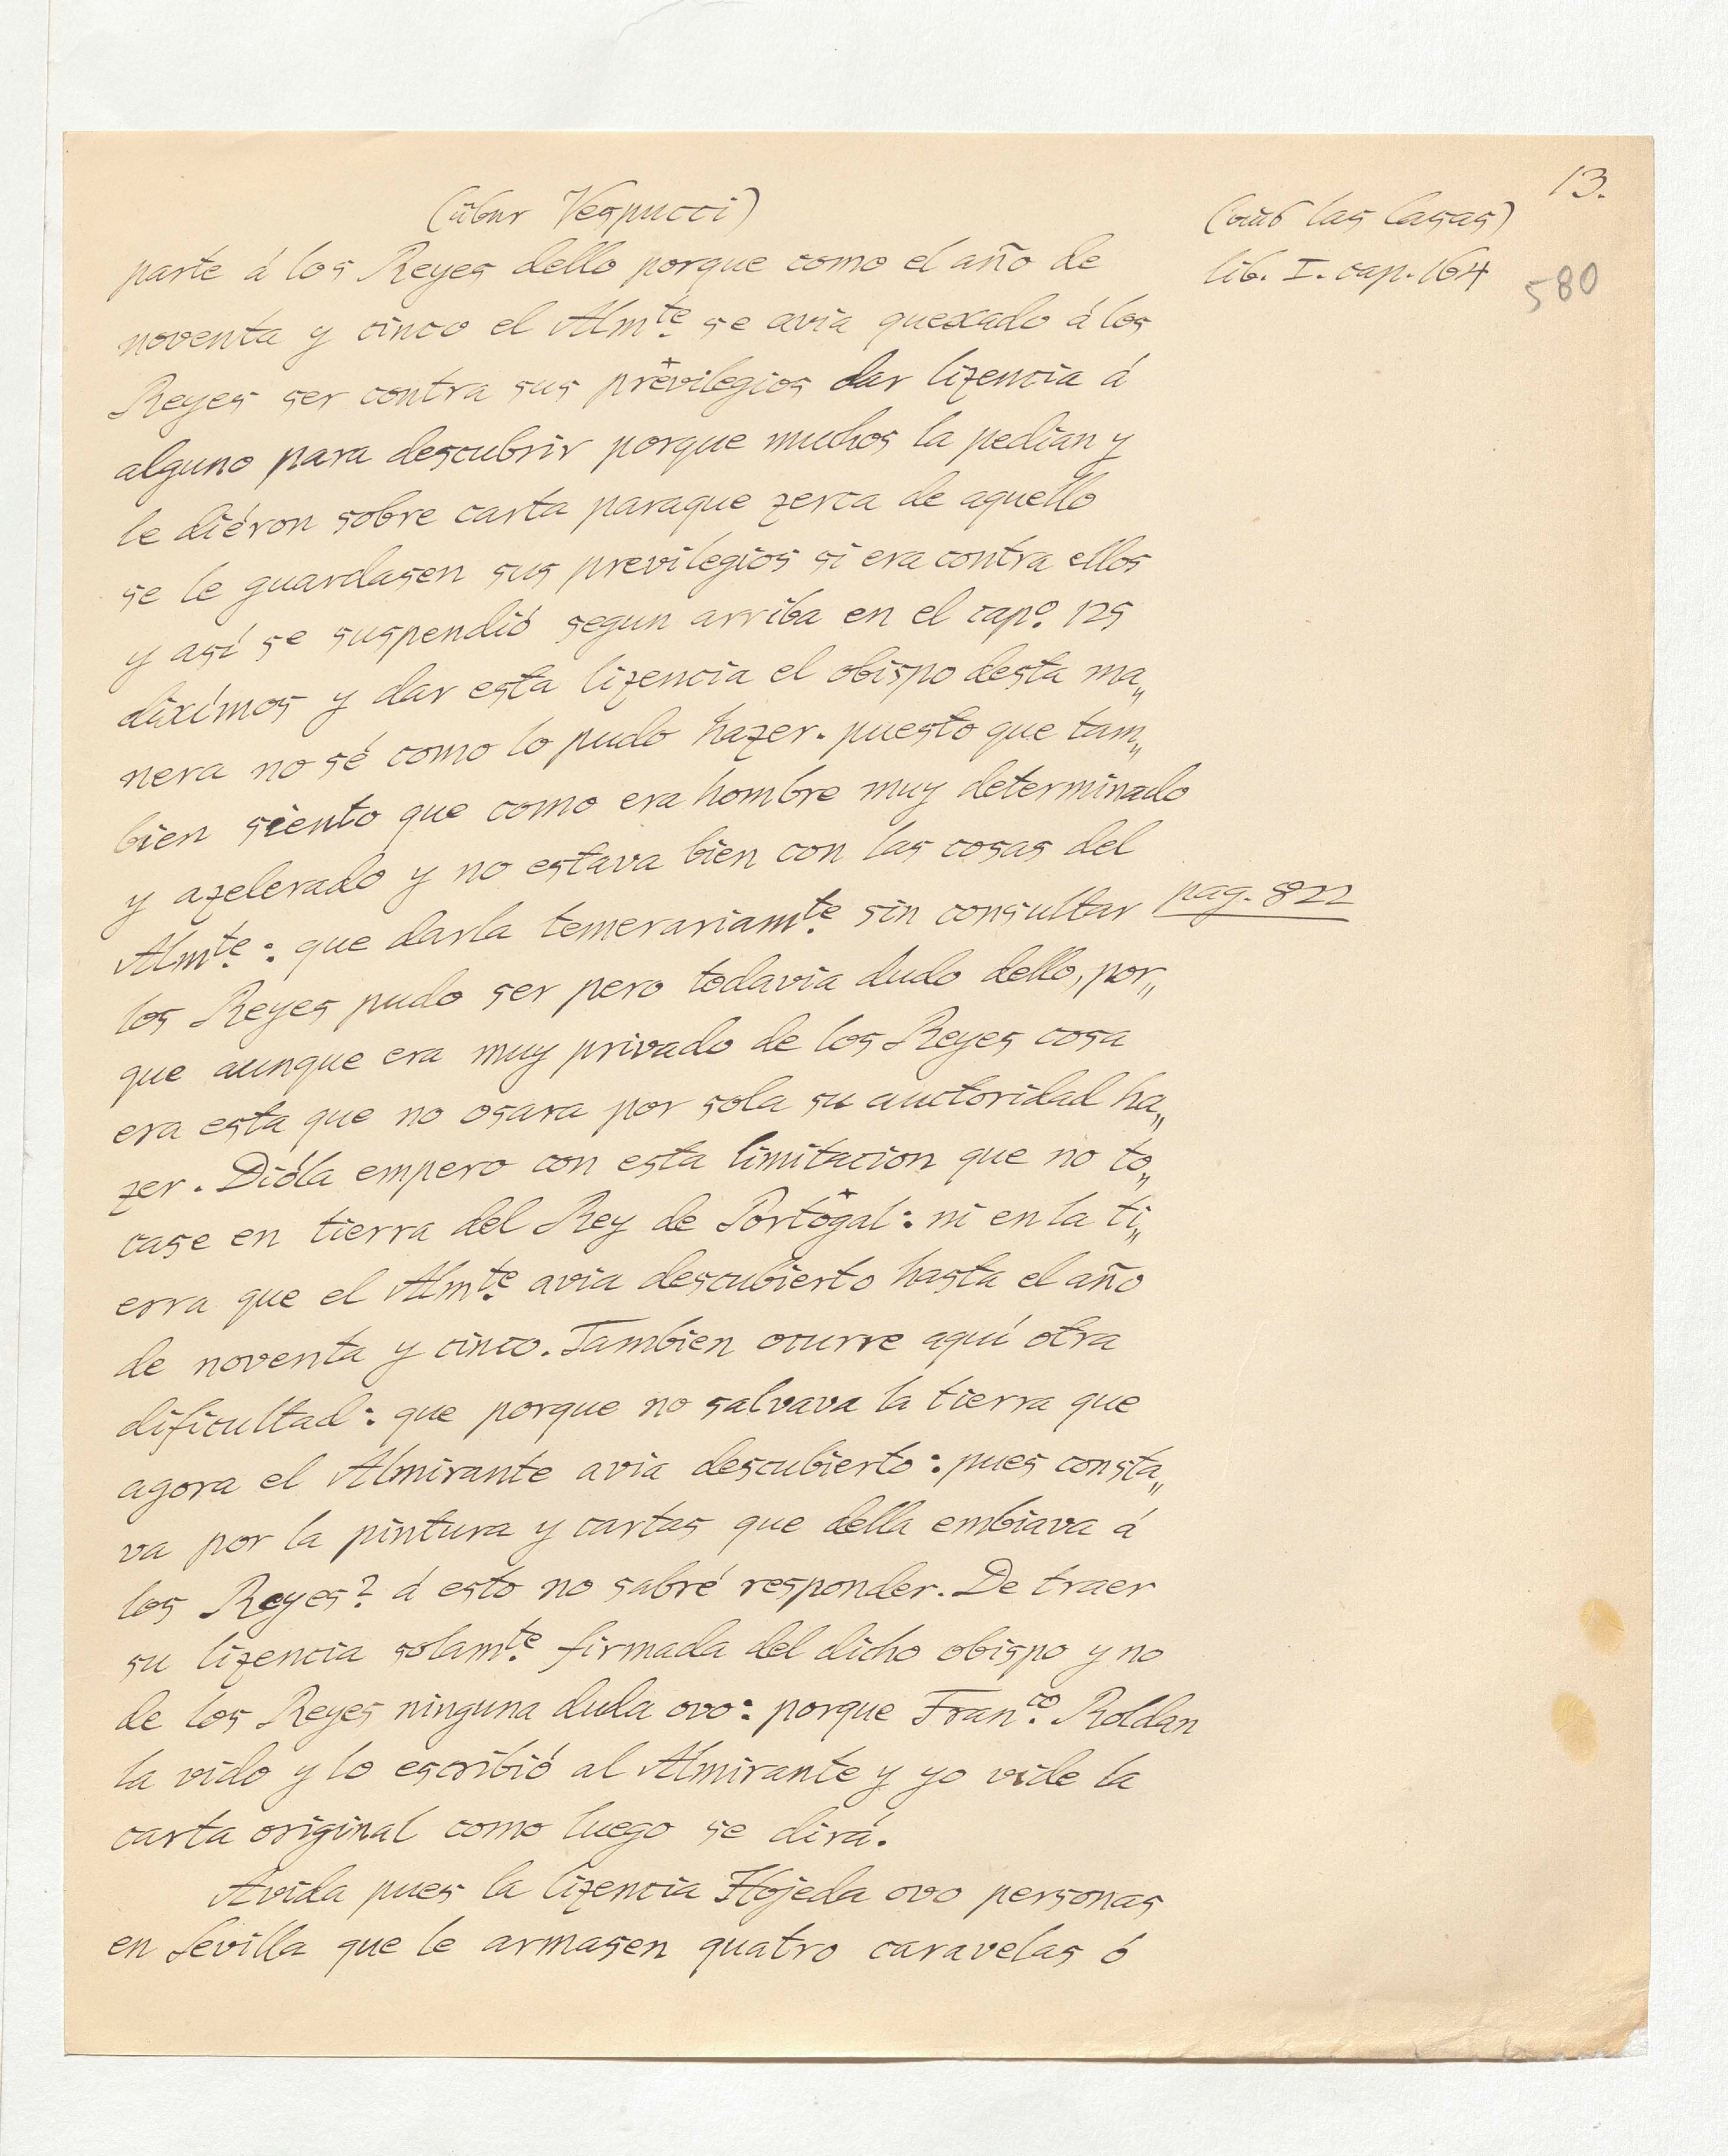 13.
(über Vespucci)
(aus las Casas)
lib. I. cap. 164
580
parte á los Reyes dello porque como el año de
noventa y cinco el Almte. se avia quexado á los
Reyes ser contra sus prëvilegios dar lizencia á
alguno para descubrir porque muchos la pedian y
le diéron sobre carta paraque zerca de aquello
se le guardasen sus previlegios si era contra ellos
y así se suspendió segun arriba en el capo. 125
diximos y dar esta lizencia el obispo desta ma„
nera no sé como lo pudo hazer. puesto que tam„
bien siento que como era hombre muy determinado
y azelerado y no estava bien con las cosas del
Almte.: que darla temerariamte. sin consultar
pag. 822
los Reyes pudo ser pero todavia dudo dello, por„
que aunque era muy privado de los Reyes cosa
era esta que no osara por sola su auctoridad ha„
zer. Dióla empero con esta limitacion que no to„
case en tierra del Rey de Portögal: ni en la ti„
erra que el Almte. avia descubierto hasta el año
de noventa y cinco. Tambien ocurre aquí otra
dificultad: que porque no salvava la tierra que
agora el Almirante avia descubierto: pues consta„
va por la pintura y cartas que della embiava á
los Reyes? á esto no sabré responder. De traer
su lizencia solamte. firmada del dicho obispo y no
de los Reyes ninguna duda ovo: porque Franco. Roldan
la vido y lo escribió al Almirante y yo vide la
carta original como luego se dirá.
Avida pues la lizencia Hojeda ovo personas
en Sevilla que le armasen quatro caravelas ó